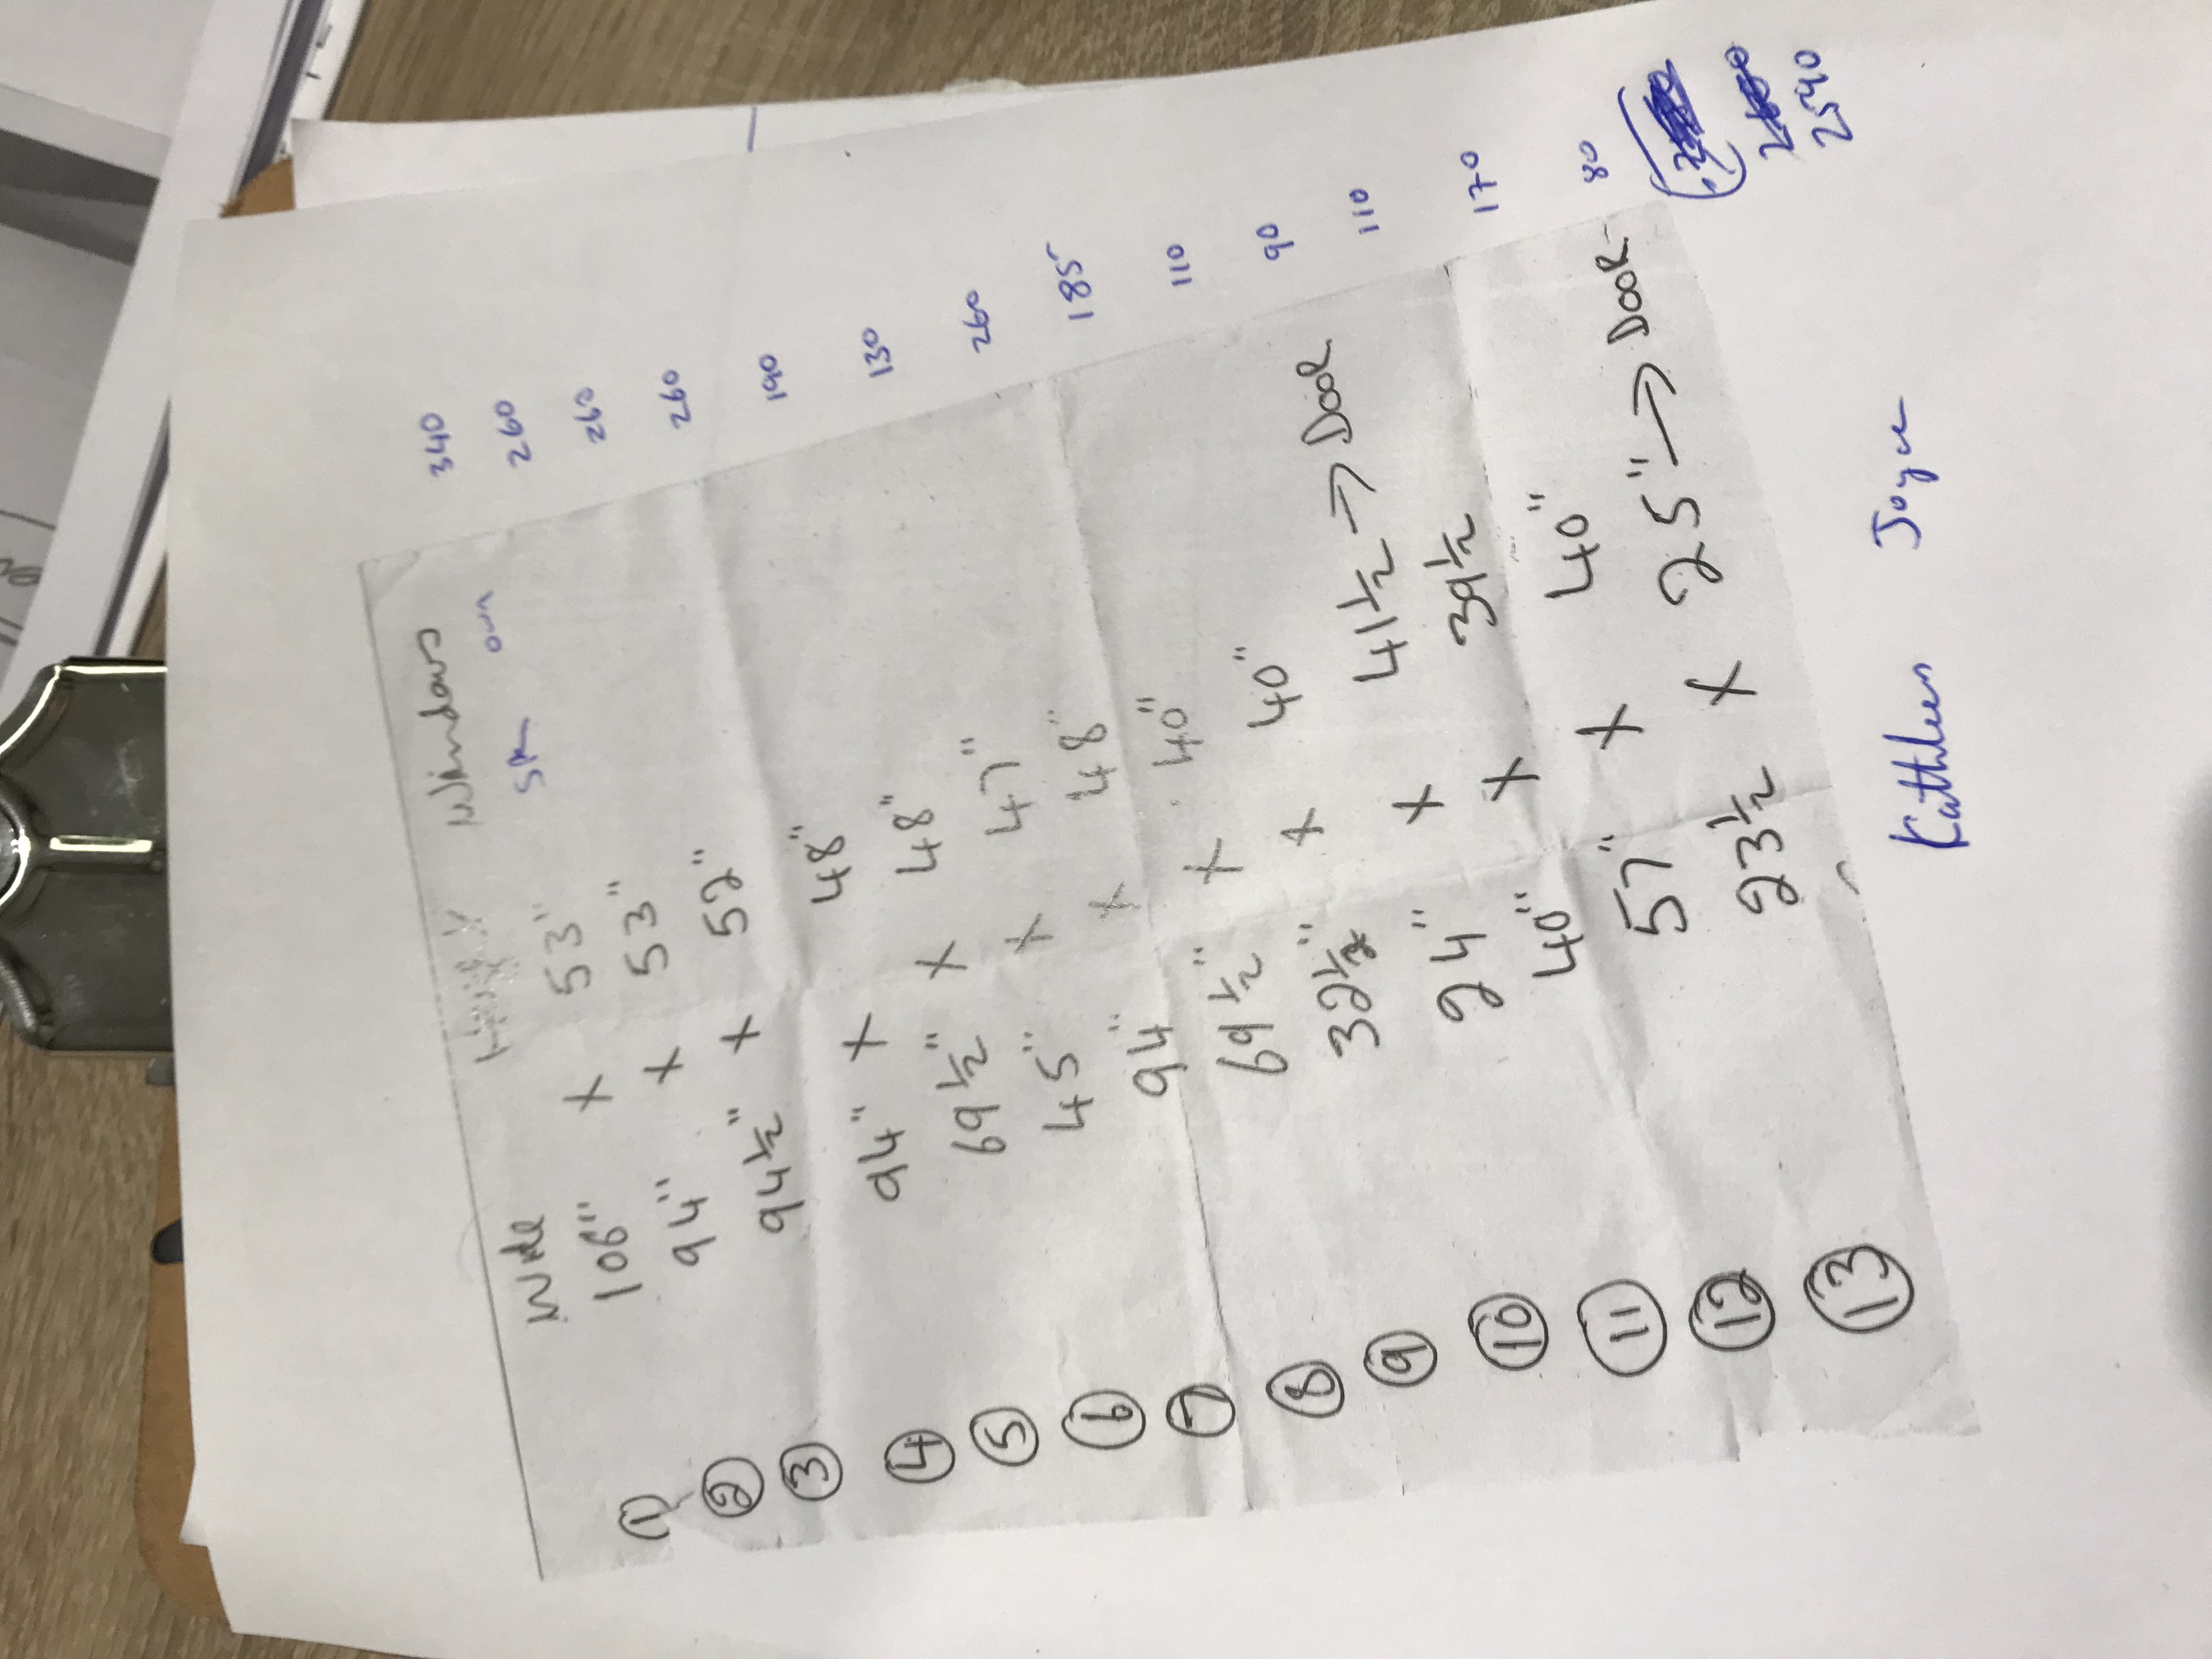 Windows
Wide
① 106" x 53" 340
② 94" x 53" 260
③ 94 1/2" x 52" 260
④ 94" x 48" 260
⑤ 69 1/2" x 48" 190
⑥ 45" x 47" 130
⑦ 94" x 48" 260
⑧ 69 1/2" x 40" 185
⑨ 32 1/2" x 40" 110
⑩ 24" x 41 1/2 → Door 90
⑪ 40" x 39 1/2 110
⑫ 57" x 40" 170
⑬ 23 1/2 x 25" → Door 80
2540
Kathleen Joyce